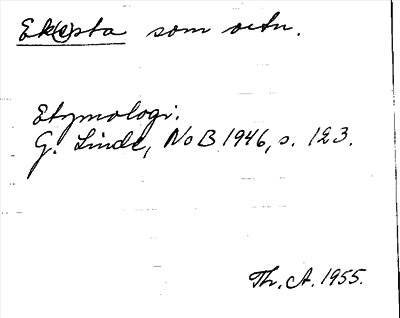 Ek(e)sta som ortn.
Etymologi.
G. Linde, NoB 1946, s. 123.
Th. A. 1955.